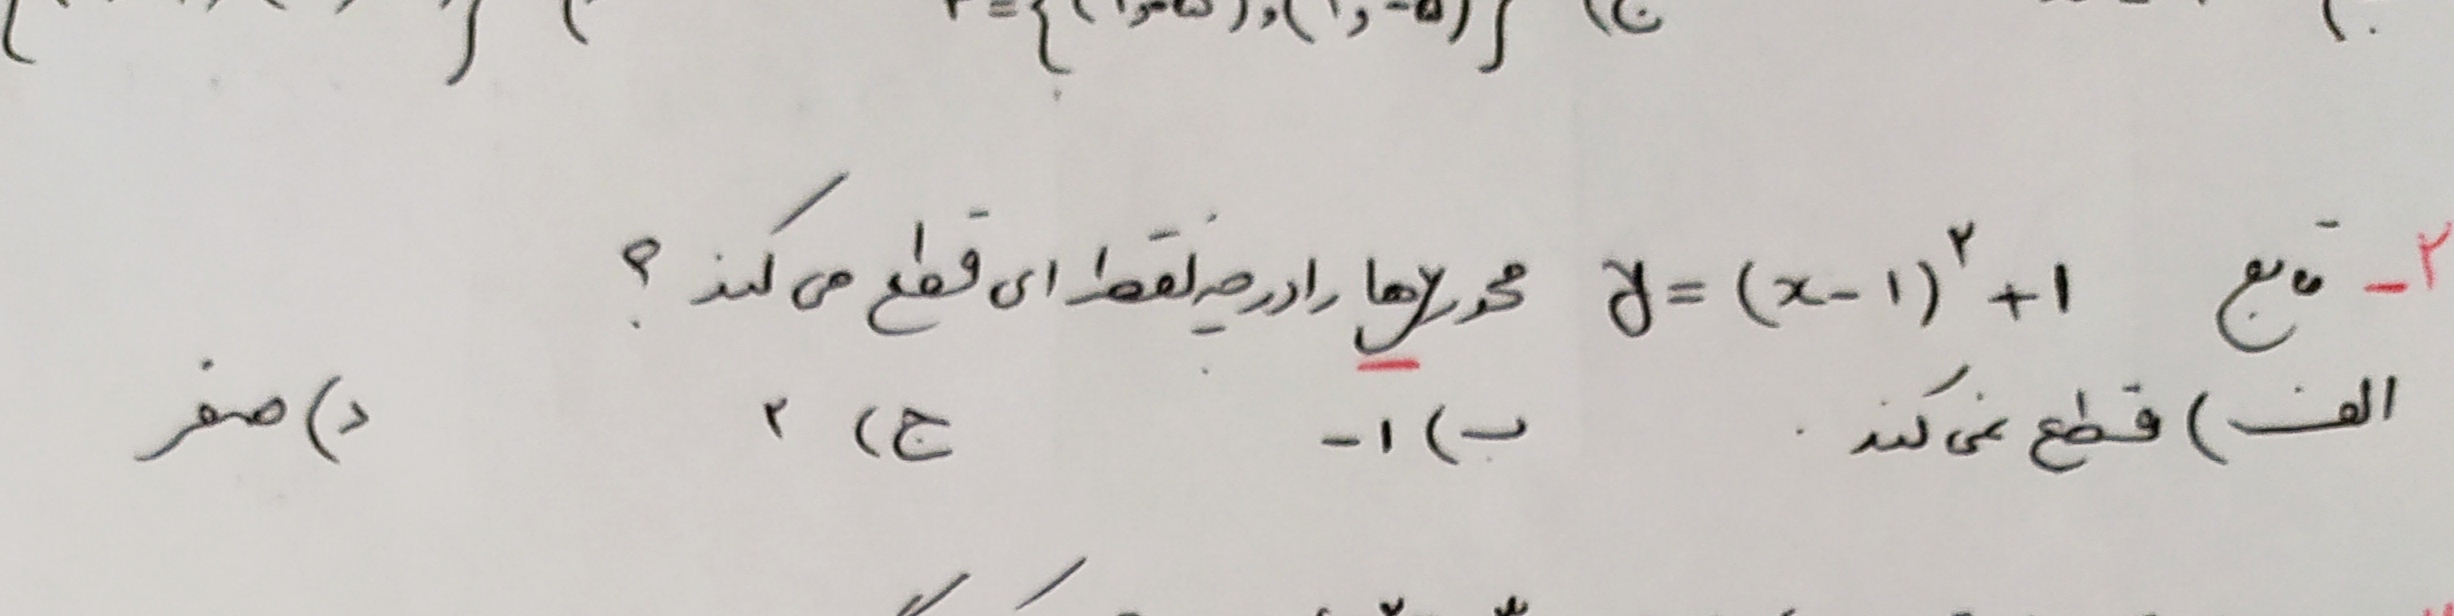 ج) {(۱,-۵),(۱,-۵)}
۲- تابع y=(x-۱)^۲+۱ محور yها را در چه نقطه ای قطع می کند ؟
الف) قطع نمی کند . ب) -۱ ج) ۲ د) صفر